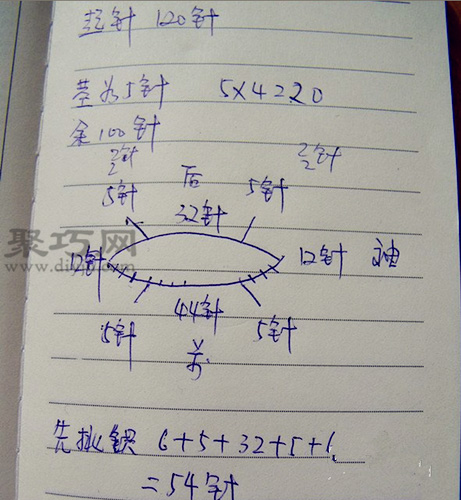 起针 120针
茎为5针 5×4=20
余100针
2针 2针
2 2
5针 后 5针
32针
聚巧网
12针 12针 袖
44针
5针 5针
前
先挑织 6+5+32+5+6
=54针